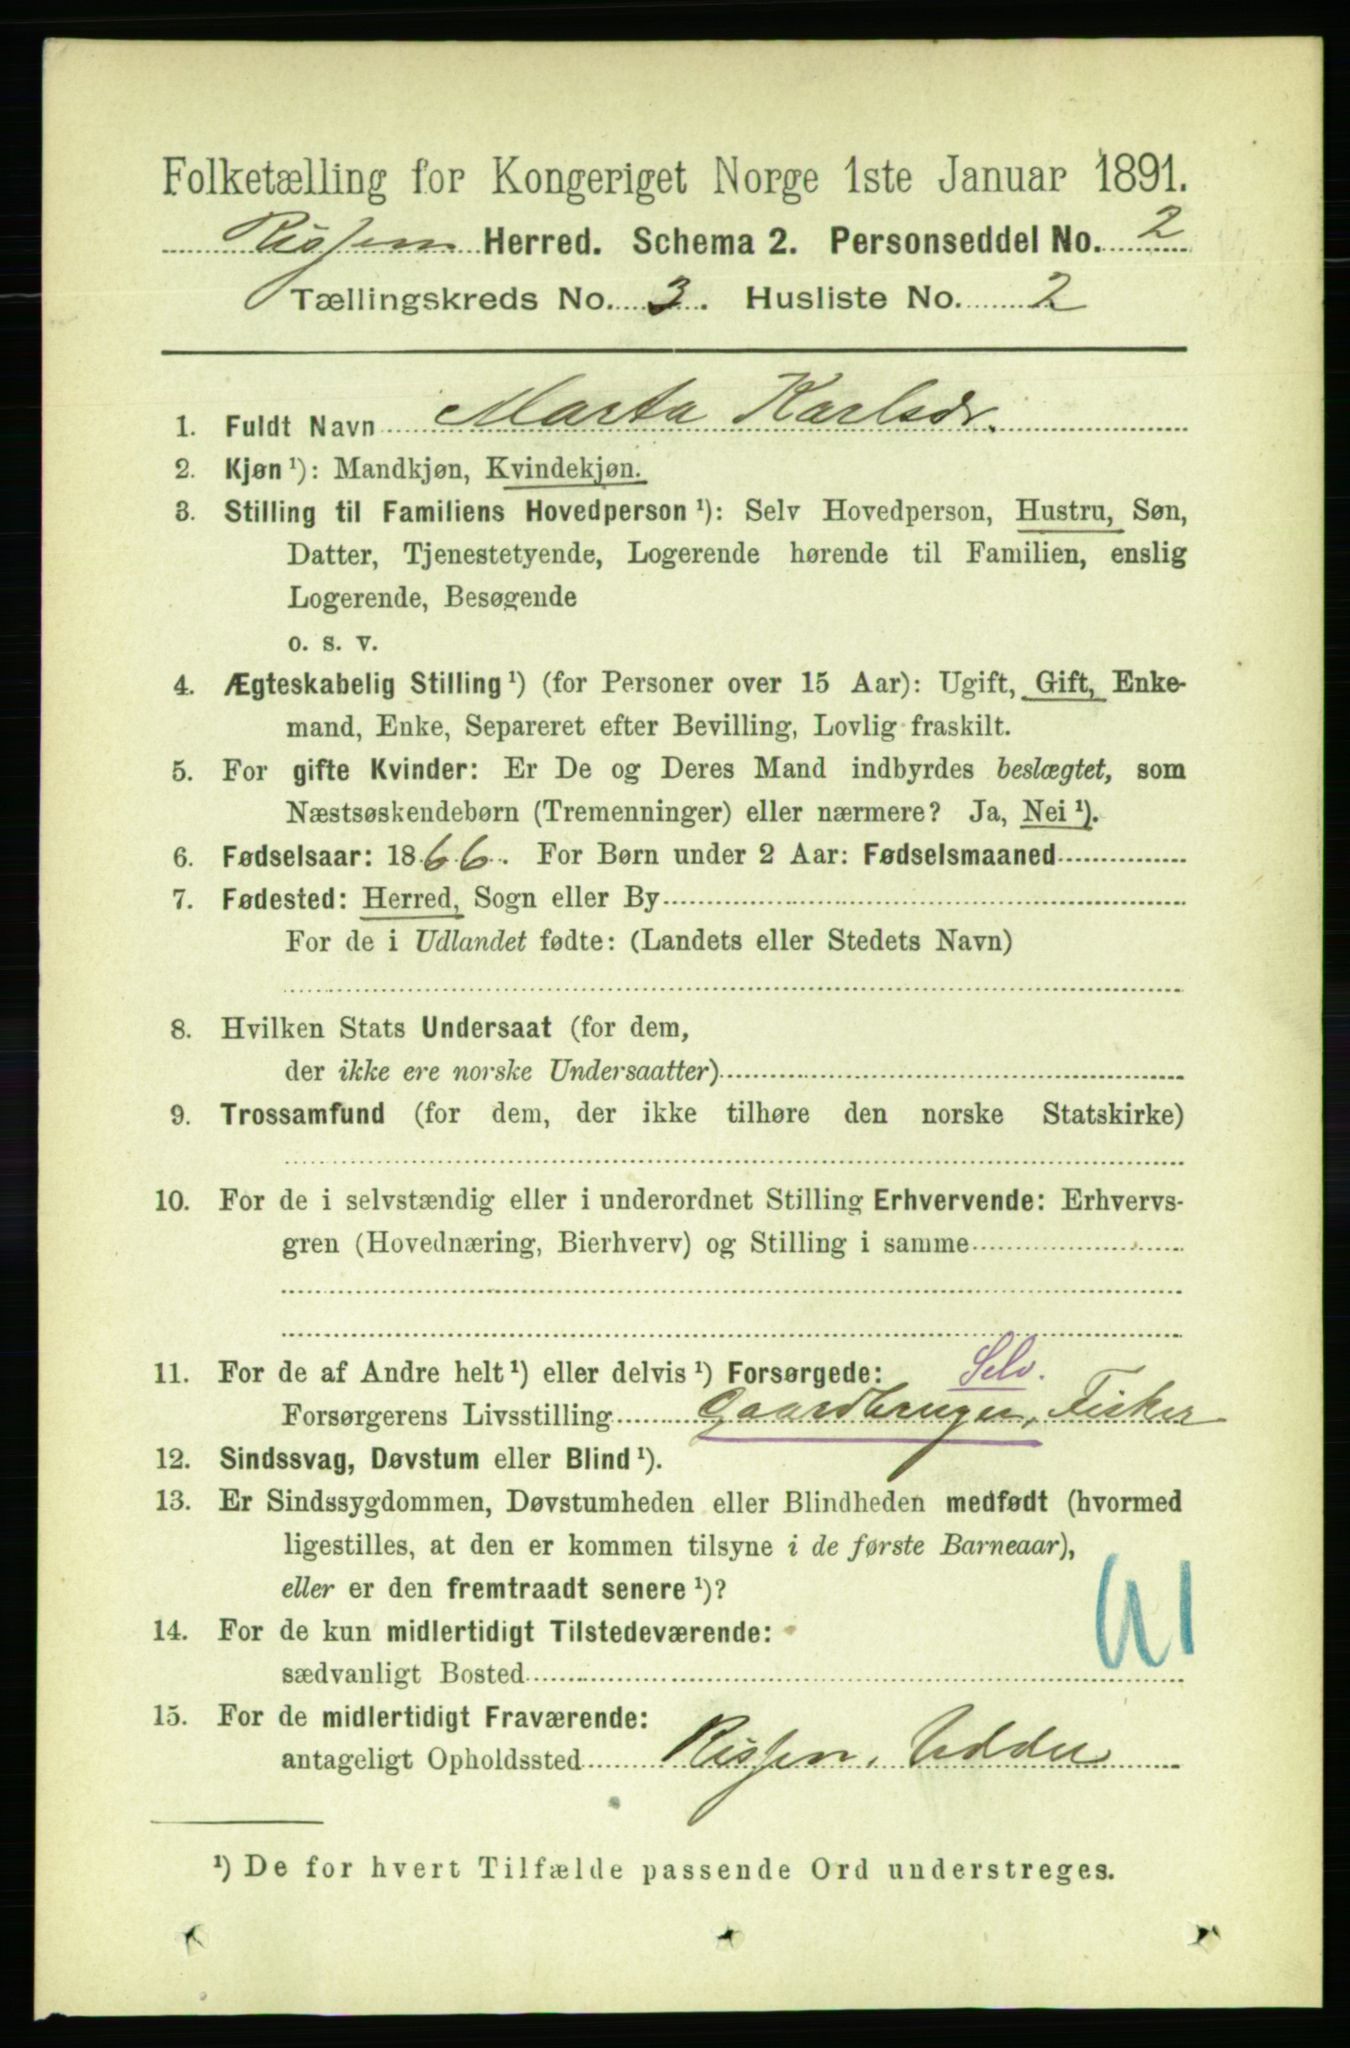 Folketælling for Kongeriget Norge 1ste Januar 1891.
Rissen Herred. Schema 2. Personseddel No. 2
Tællingskreds No. 3. Husliste No. 2
1. Fuldt Navn Marta Karlsdr.
2. Kjøn ¹): Mandkjøn, Kvindekjøn.
3. Stilling til Familiens Hovedperson ¹): Selv Hovedperson, Hustru, Søn,
Datter, Tjenestetyende, Logerende hørende til Familien, enslig
Logerende, Besøgende
o. s. v.
4. Ægteskabelig Stilling ¹) (for Personer over 15 Aar): Ugift, Gift, Enke-
mand, Enke, Separeret efter Bevilling, Lovlig fraskilt.
5. For gifte Kvinder: Er De og Deres Mand indbyrdes beslægtet, som
Næstsøskendebørn (Tremenninger) eller nærmere? Ja, Nei ¹).
6. Fødselsaar: 1866. For Børn under 2 Aar: Fødselsmaaned
7. Fødested: Herred, Sogn eller By
For de i Udlandet fødte: (Landets eller Stedets Navn)
8. Hvilken Stats Undersaat (for dem,
der ikke ere norske Undersaatter)
9. Trossamfund (for dem, der ikke tilhøre den norske Statskirke)
10. For de i selvstændig eller i underordnet Stilling Erhvervende: Erhvervs-
gren (Hovednæring, Bierhverv) og Stilling i samme
11. For de af Andre helt ¹) eller delvis ¹) Forsørgede: Selv.
Forsørgerens Livsstilling Gaardbruger, Fisker
12. Sindssvag, Døvstum eller Blind ¹).
13. Er Sindssygdommen, Døvstumheden eller Blindheden medfødt (hvormed
ligestilles, at den er kommen tilsyne i de første Barneaar),
eller er den fremtraadt senere ¹)?
14. For de kun midlertidigt Tilstedeværende:
sædvanligt Bosted
15. For de midlertidigt Fraværende:
antageligt Opholdssted Rissen,
¹) De for hvert Tilfælde passende Ord understreges.